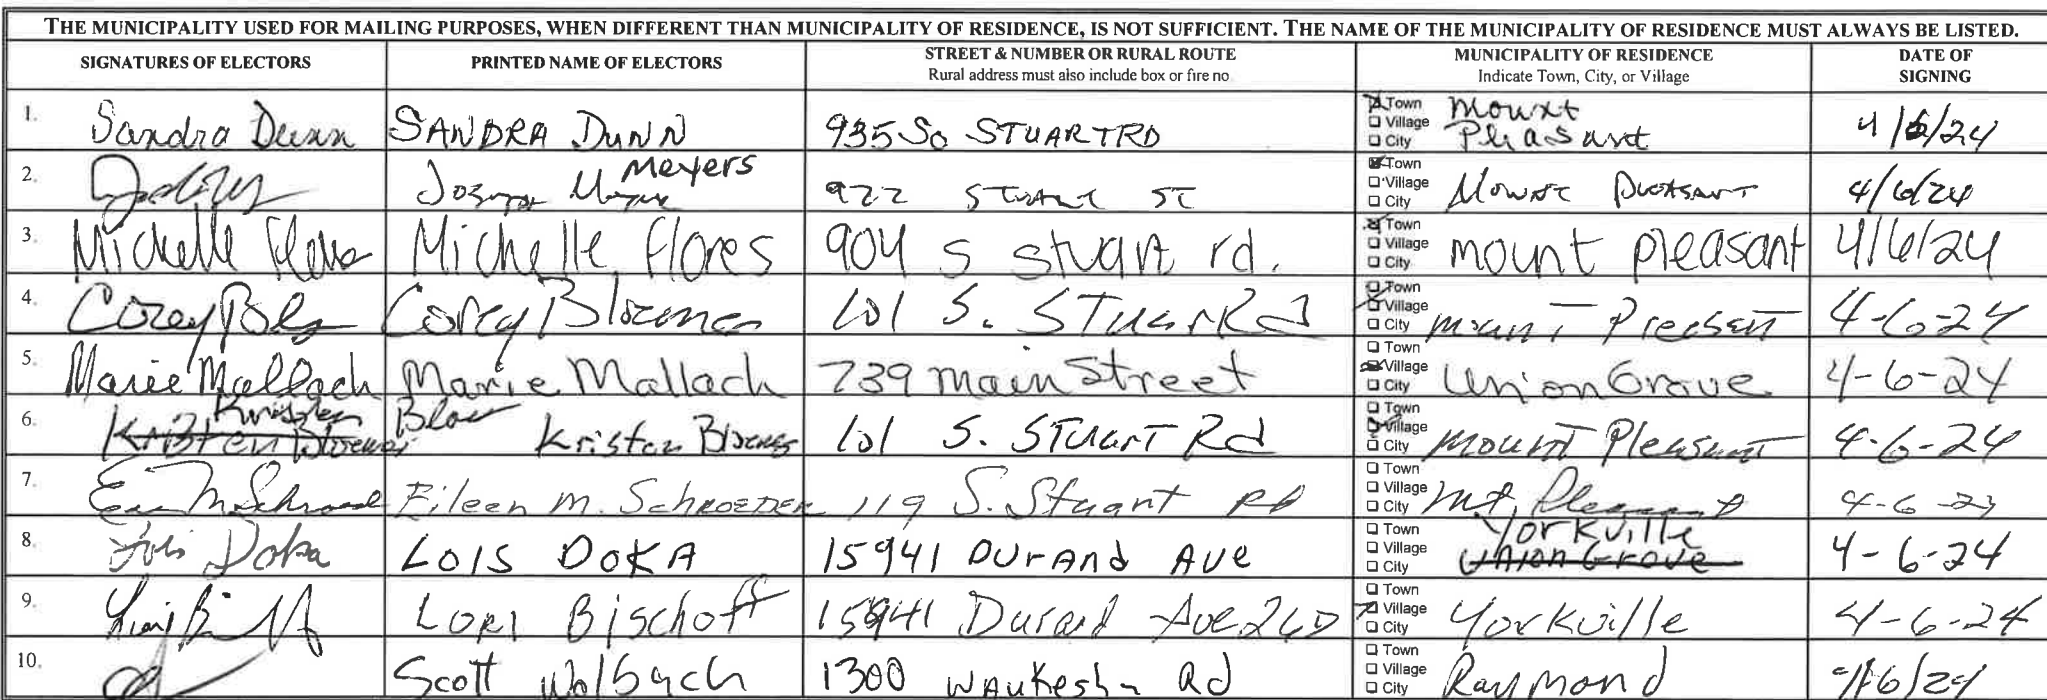 THE MUNICIPALITY USED FOR MAILING PURPOSES, WHEN DIFFERENT THAN MUNICIPALITY OF RESIDENCE, IS NOT SUFFICIENT. THE NAME OF THE MUNICIPALITY OF RESIDENCE MUST ALWAYS BE LISTED.
SIGNATURES OF ELECTORS
PRINTED NAME OF ELECTORS
STREET & NUMBER OR RURAL ROUTE
Rural address must also include box or fire no
MUNICIPALITY OF RESIDENCE
Indicate Town, City, or Village
DATE OF
SIGNING
1. Sandra Dunn SANDRA DUNN 935 So STUART RD Town Village City Mount Pleasant 4/6/24
2. Meyers 922 ST Town Village City Mount Pleasant 4/6/24
3. Michelle Flores Michelle Flores 904 S Stuart rd. Town Village City mount pleasant 4/6/24
4. Corey Corey 101 S. Stuar Rd Town Village City mount 4-6-24
5. Marie Mallach Marie Mallach 739 main Street Town Village City Union Grove 4-6-24
6. Kristen Kristen 101 S. STuarT Rd Town Village City mount Pleasant 4-6-24
7. Eileen M. SCHROEDER 119 S. Stuart Rd Town Village City Mt. Pleasant 4-6-23
8. Lois Doka LOIS DOKA 15941 DUrANd AVe Town Village City Yorkville Union Grove 4-6-24
9. LORI Bischoff 15941 Durand Ave 26D Town Village City Yorkville 4-6-24
10. Scott Wolbach 1300 WAukesha Rd Town Village City Raymond 4/6/24